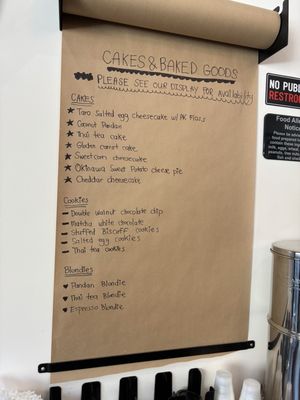 CAKES & BAKED GOODS
PLEASE SEE OUR DISPLAY FOR AVAILABILITY
CAKES
★ Taro Salted egg cheesecake w/ PK Floss
★ Carrot Pandan
★ Thai tea cake
★ Gluten carrot cake
★ Sweetcorn cheesecake
★ Okinawa Sweet Potato cheese pie
★ Cheddar cheesecake
Cookies
- Double walnut chocolate chip
- Matcha white chocolate
- Stuffed Biscoff cookies
- Salted egg cookies
- Thai tea cookies
Blondies
♥ Pandan Blondie
♥ Thai tea Blondie
♥ Espresso Blondie
NO PUB
RESTRO
Food Alle
Notice